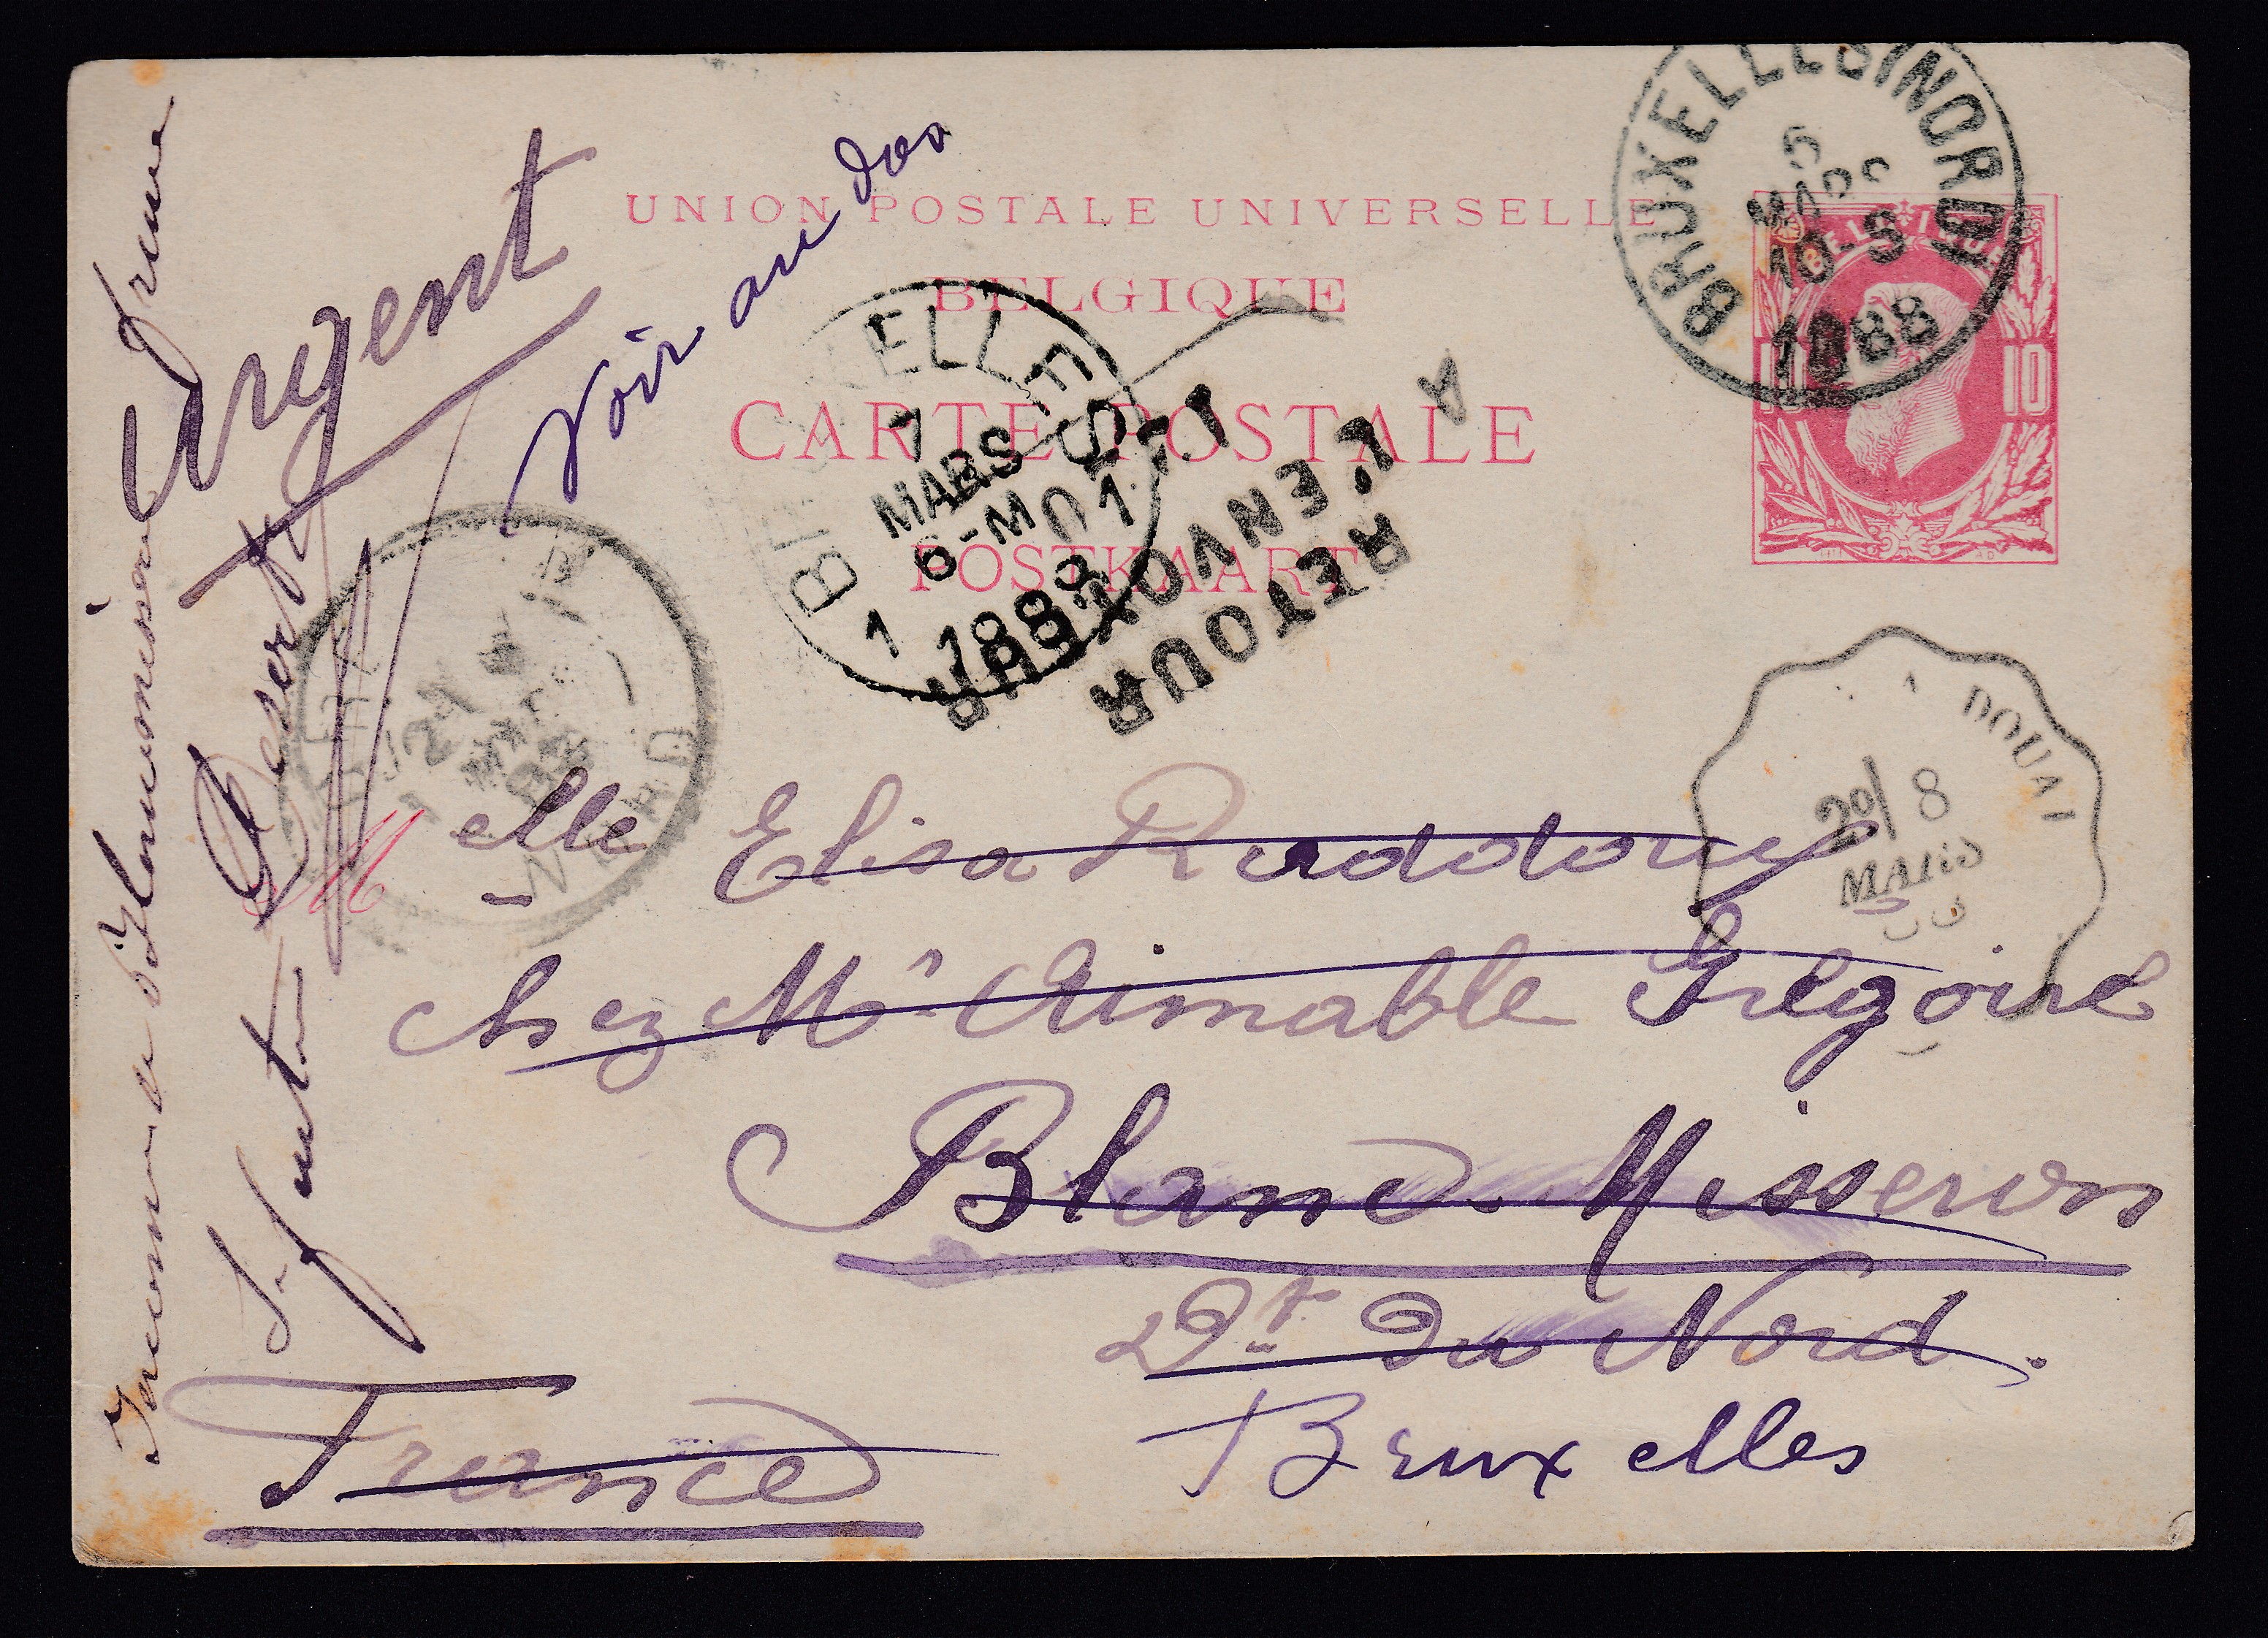 UNION POSTALE UNIVERSELLE
BELGIQUE
CARTE POSTALE
POSTKAART
BELGIQUE
10 10
BRUXELLES (NORD)
5
MARS
10-S
1888
BRUXELLES
7
MARS
6-M
1888
1
1771
RETOUR
A
L'ENVOYEUR
DOUAI
20/ 8
MARS
NORD
Urgent
Voir au dos
Inconnu à Blancmisseron
Le facteur
Elle Elisa
chez Mr Aimable Grégoire
Blanc-Misseron
Dt du Nord.
France
Bruxelles